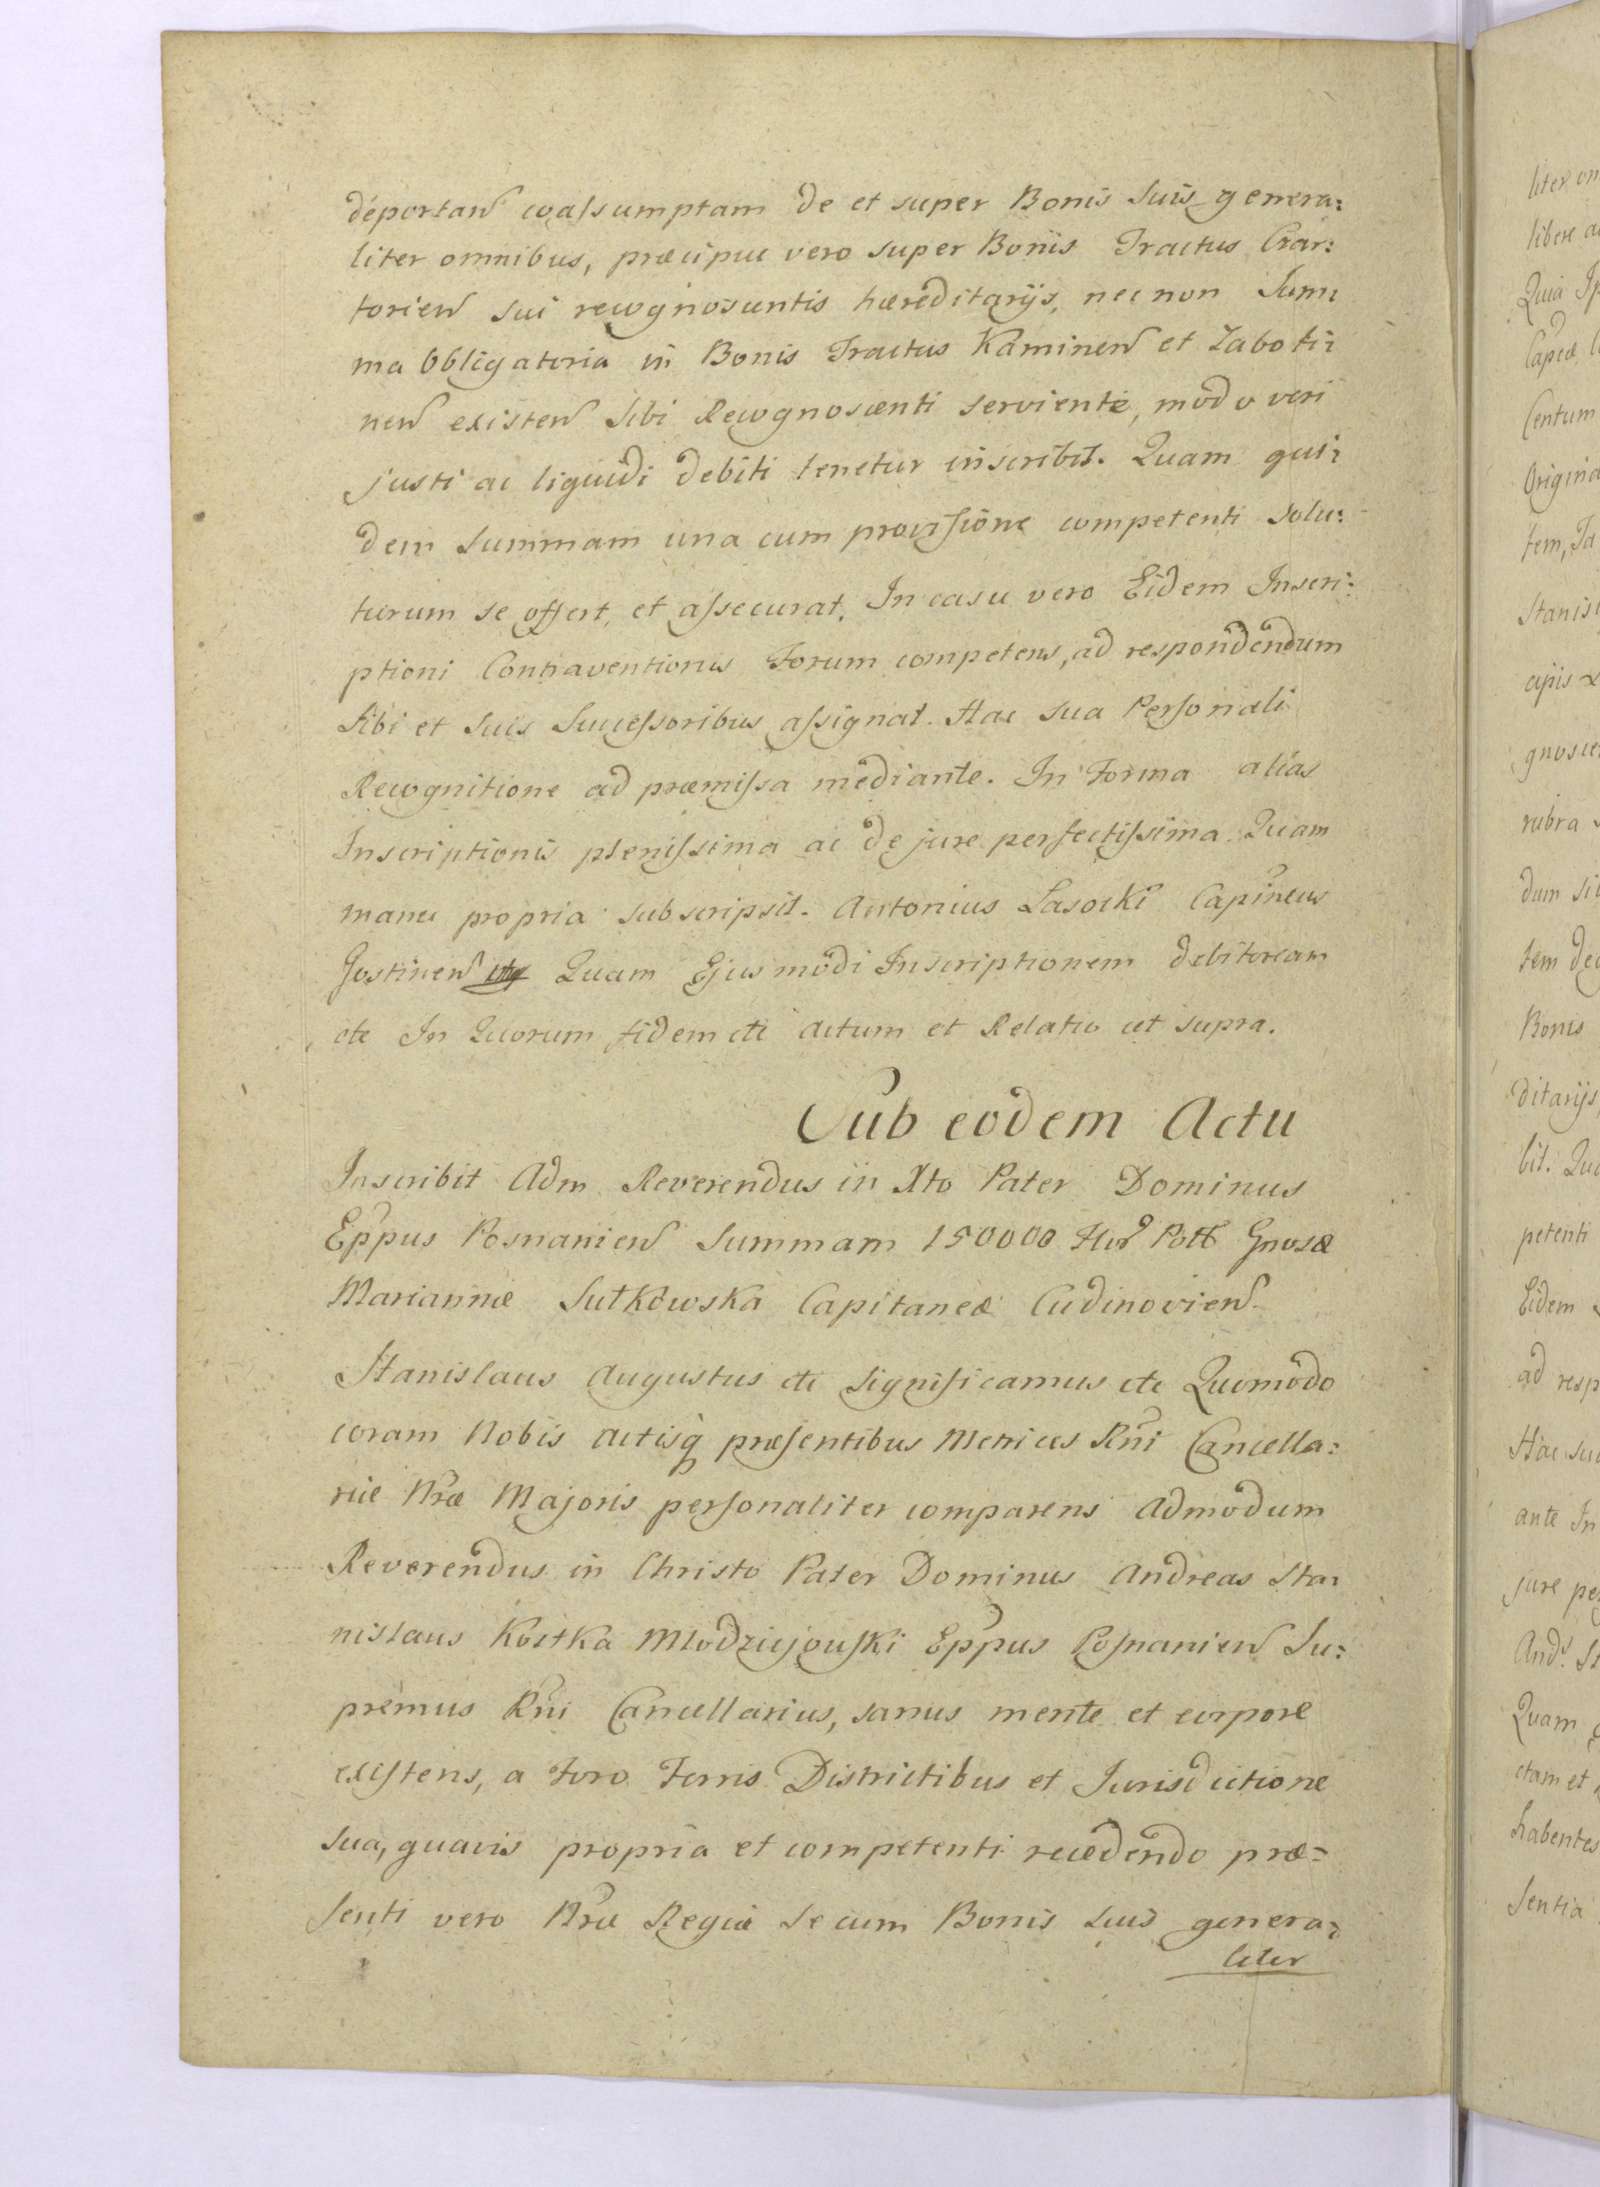 deportan coassumptam de et super Bonis Suis genera:
liter omnibus, præcipue vero super Bonis Tractus Czar:
torien sui recognoscentis hæreditarijs, nec non Sum:
ma Obligatoria in Bonis Tractus Kaminen et Zaboti:
nen existen Sibi Recognoscenti serviente, modo veri
justi ac liquidi debiti tenetur inscribit. Quam qui:
dem Summam una cum provisione competenti solu:
turum se offert, et assecurat. In casu vero Eidem Inscri:
ptioni Contraventionis Forum competens, ad respondendum
Sibi et Suis Successoribus assignat. Hac sua Personali
Recognitione ad præmissa mediante. In Forma alias
Inscriptionis plenissima ac de jure perfectissima. Quam
manu propria subscripsit. Antonius Lasocki Capineus
Gostinen Quam Ejusmodi Inscriptionem debitoream
etc In Quorum fidem etc Actum et Relatio ut supra.
Sub eodem Actu
Inscribit Adm Reverendus in Xto Pater Dominus
Eppus Posnanien Summam 150000 Flor Poll Gnosæ
Mariannæ Sułkowska Capitaneæ Cudinovien
Stanislaus Augustus etc Significamus etc Quomodo
coram Nobis Actisq præsentibus Metrices Rni Cancella:
riæ Nræ Majoris personaliter comparens Admodum
Reverendus in Christo Pater Dominus Andreas Sta:
nislaus Kostka Młodziejowski Eppus Posnanien Su:
premus Rni Cancellarius, sanus mente et corpore
existens, a Foro Terris Districtibus et Jurisdictione
sua, quavis propria et competenti recedendo præ=
senti vero Nræ Regiæ se cum Bonis suis genera:
liter